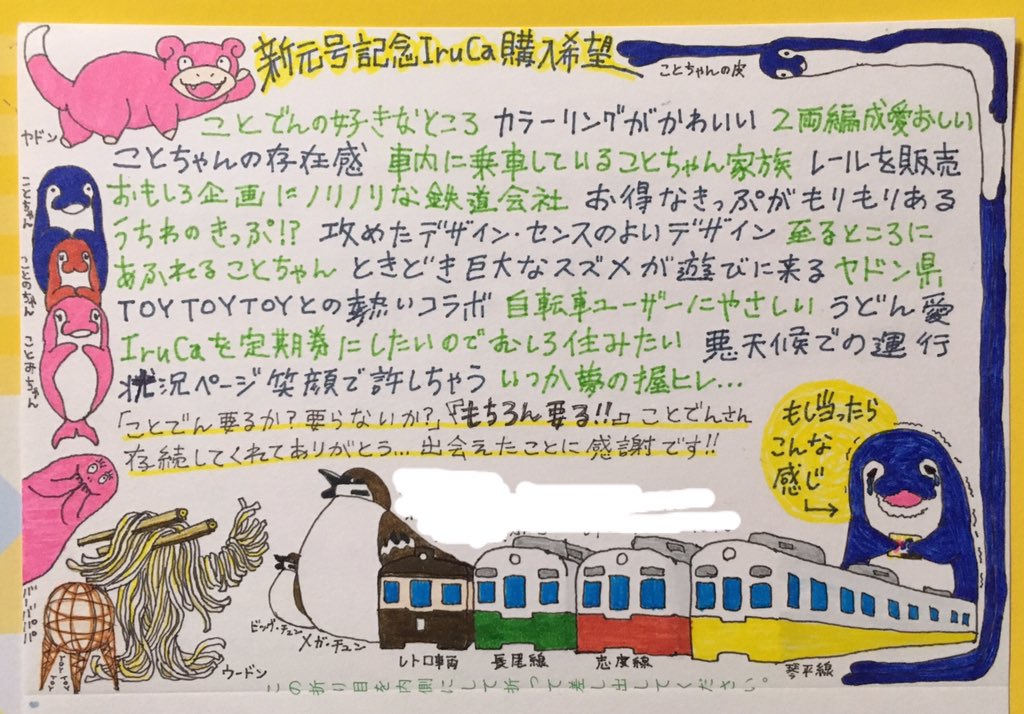 新元号記念IruCa購入希望
ことちゃんの皮
ヤドン
ことでんの好きなところ カラーリングがかわいい 2両編成愛おしい
ことちゃんの存在感 車内に乗車していることちゃん家族 レールを販売
おもしろ企画にノリノリな鉄道会社 お得なきっぷがもりもりある
うちわのきっぷ!? 攻めたデザイン・センスのよいデザイン 至るところに
あふれることちゃん ときどき巨大なスズメが遊びに来る ヤドン県
TOYTOYTOYとの熱いコラボ 自転車ユーザーにやさしい うどん愛
IruCaを定期券にしたいのでむしろ住みたい 悪天候での運行
状況ページ笑顔で許しちゃう いつか夢の握ヒレ...
「ことでん要るか?要らないか?」『もちろん要る!!』ことでんさん
存続してくれてありがとう...出会えたことに感謝です!!
ことちゃん
ことのちゃん
ことみちゃん
もし当ったら
こんな
感じ
バーバパパ
TOY TOY TOY
ウードン
ビッグ・チュン
メガ・チュン
レトロ車両
長尾線
志度線
琴平線
この折り目を内側にして折って差し出してください。